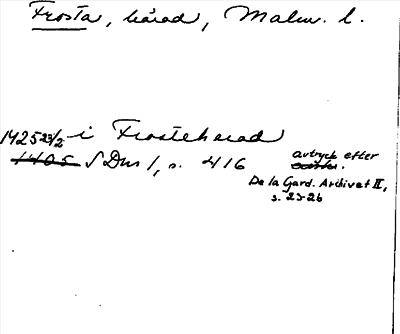 Frosta, härad, Malm. l.
1425 23/2 i Frosteherad
1405 SDns 1, s. 416 avtryck efter
De la Gard. Archivet II,
s. 23-26